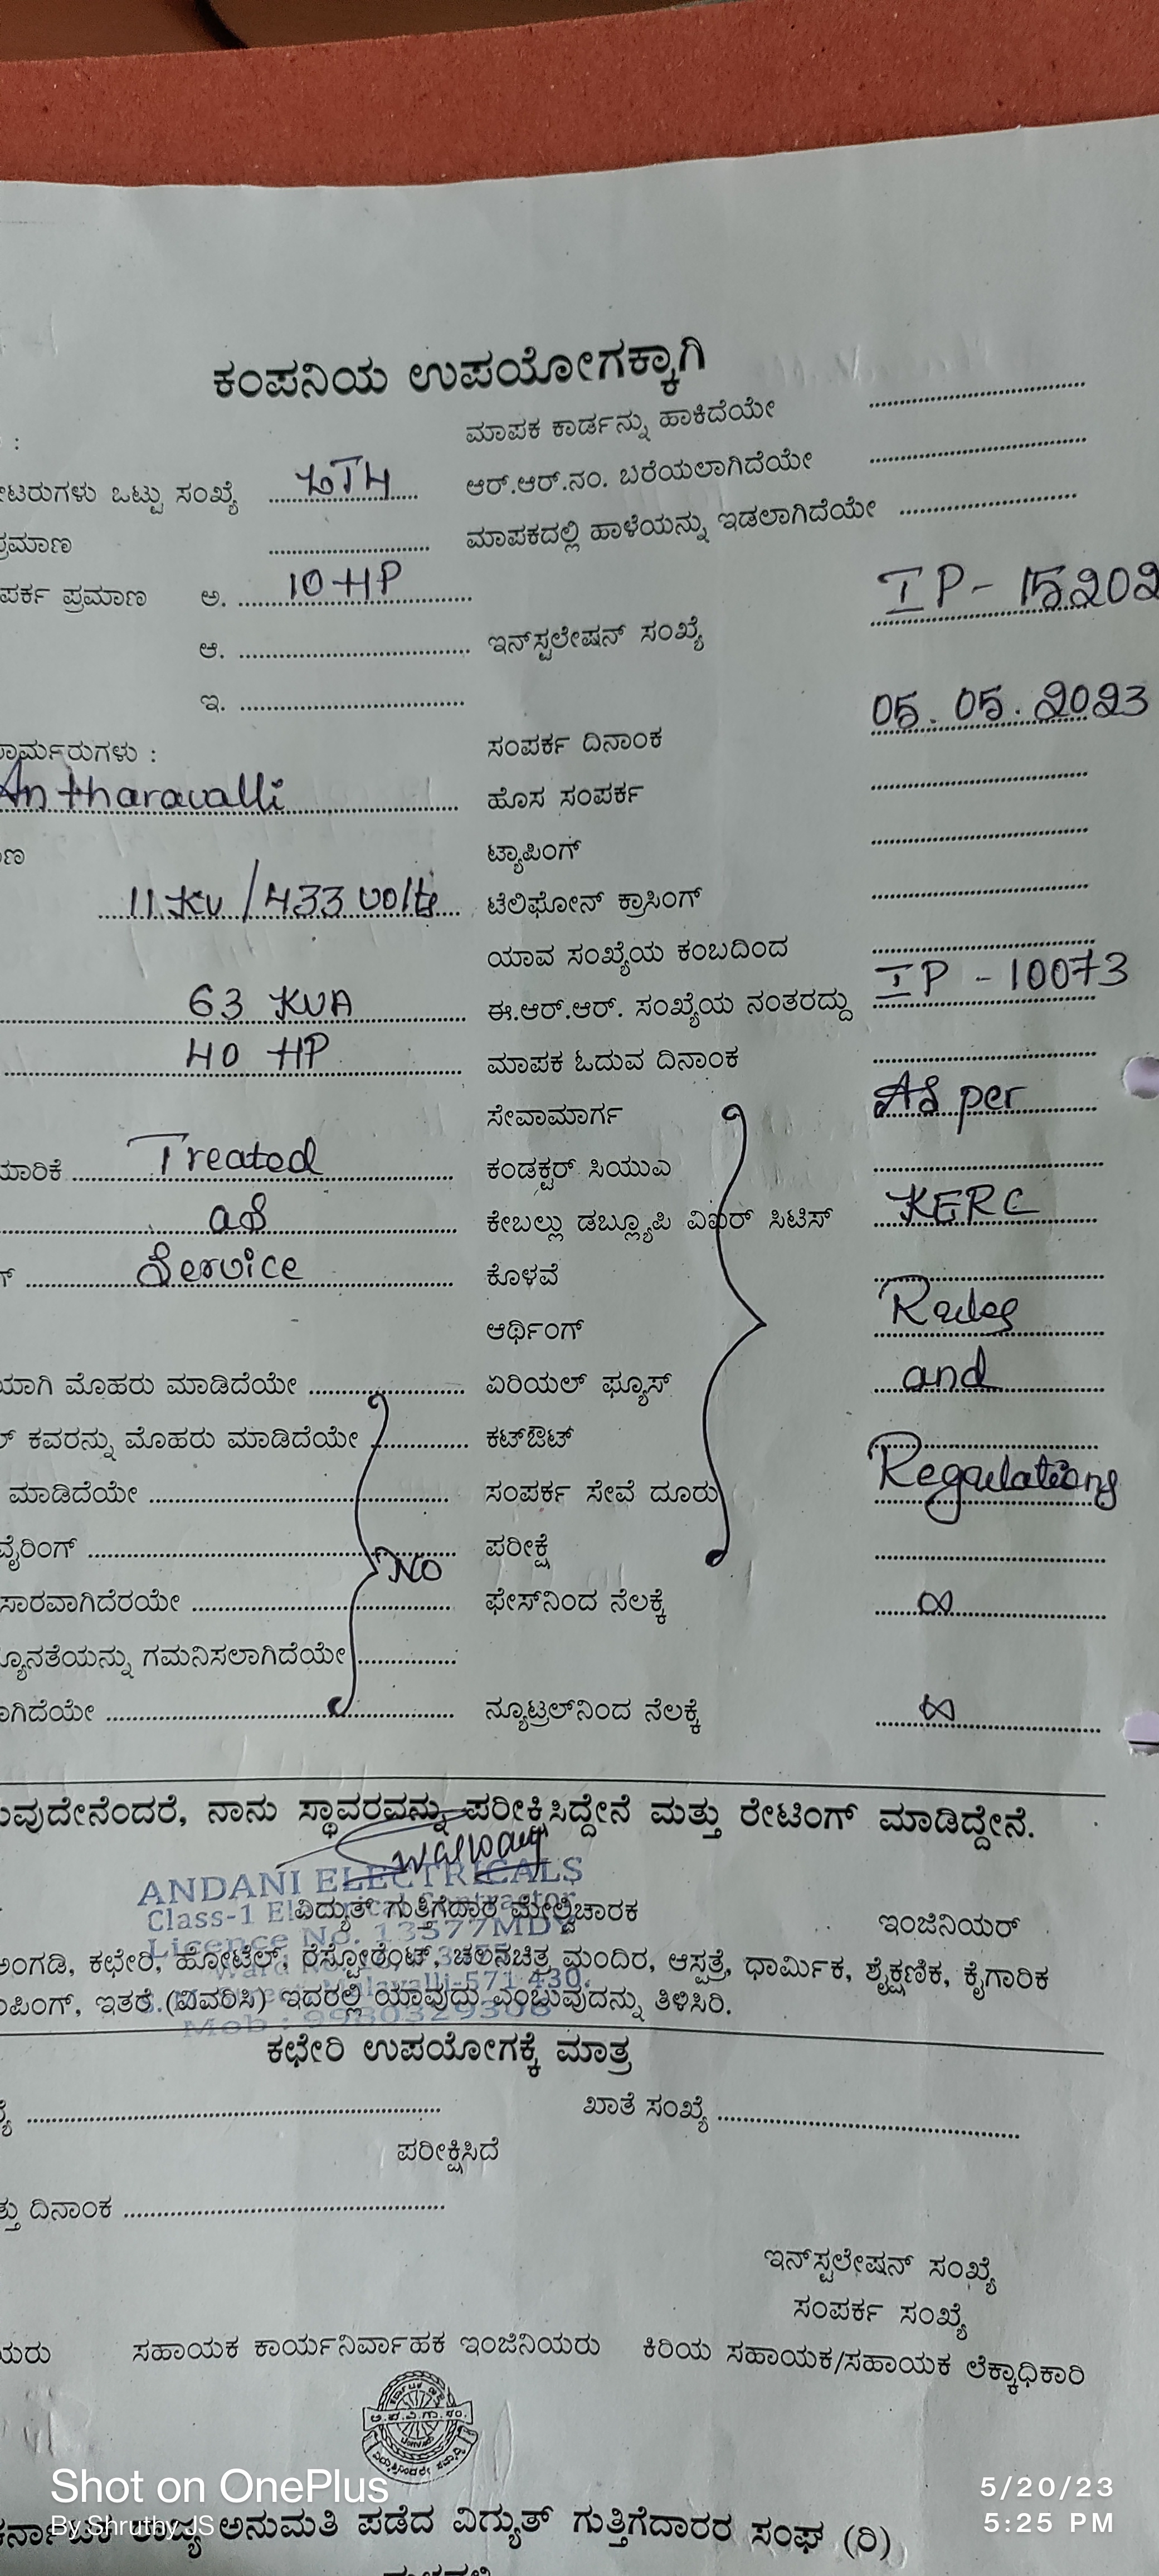 ಕಂಪನಿಯ ಉಪಯೋಗಕ್ಕಾಗಿ
ಮಾಪಕ ಕಾರ್ಡನ್ನು ಹಾಕಿದೆಯೇ ....................
ಒಟ್ಟು ಸಂಖ್ಯೆ ........ ಆರ್.ಆರ್.ನಂ. ಬರೆಯಲಾಗಿದೆಯೇ ....................
ಪ್ರಮಾಣ .................... ಮಾಪಕದಲ್ಲಿ ಹಾಳೆಯನ್ನು ಇಡಲಾಗಿದೆಯೇ ....................
ಪ್ರಮಾಣ ಅ. 10 HP
ಆ. .................... ಇನ್‌ಸ್ಟಲೇಷನ್ ಸಂಖ್ಯೆ IP-15202
ಇ. ....................
ಸಂಪರ್ಕ ದಿನಾಂಕ 05.05.2023
Antharavalli ಹೊಸ ಸಂಪರ್ಕ ....................
ಟ್ಯಾಪಿಂಗ್ ....................
11 KV / 433 volts ಟೆಲಿಫೋನ್ ಕ್ರಾಸಿಂಗ್ ....................
ಯಾವ ಸಂಖ್ಯೆಯ ಕಂಬದಿಂದ ....................
63 KVA ಈ.ಆರ್.ಆರ್. ಸಂಖ್ಯೆಯ ನಂತರದ್ದು IP - 10073
40 HP ಮಾಪಕ ಓದುವ ದಿನಾಂಕ ....................
ಸೇವಾಮಾರ್ಗ As per
Treated ಕಂಡಕ್ಟರ್ ಸಿಯುಎ ....................
as ಕೇಬಲ್ಲು ಡಬ್ಲ್ಯೂಪಿ ವಿಐರ್ ಸಿಟಿಸ್ KERC
Service ಕೊಳವೆ ....................
ಆರ್ಥಿಂಗ್ Rules
ಮೊಹರು ಮಾಡಿದೆಯೇ .................... ಏರಿಯಲ್ ಫ್ಯೂಸ್ and
ಕವರನ್ನು ಮೊಹರು ಮಾಡಿದೆಯೇ .................... ಕಟ್‌ಔಟ್ ....................
ಮಾಡಿದೆಯೇ .................... ಸಂಪರ್ಕ ಸೇವೆ ದೂರು Regulations
ವೈರಿಂಗ್ .................... No ಪರೀಕ್ಷೆ ....................
.................... ಫೇಸ್‌ನಿಂದ ನೆಲಕ್ಕೆ ∞
ಗಮನಿಸಲಾಗಿದೆಯೇ ....................
.................... ನ್ಯೂಟ್ರಲ್‌ನಿಂದ ನೆಲಕ್ಕೆ ∞
ನಾನು ಸ್ಥಾವರವನ್ನು ಪರೀಕ್ಷಿಸಿದ್ದೇನೆ ಮತ್ತು ರೇಟಿಂಗ್ ಮಾಡಿದ್ದೇನೆ.
ANDANI ELECTRICALS
Class-1 Electrical Contractor
ವಿದ್ಯುತ್ ಗುತ್ತಿಗೆದಾರ ಮೇಲ್ವಿಚಾರಕ ಇಂಜಿನಿಯರ್
Licence No. 13577MDY
ಅಂಗಡಿ, ಕಛೇರಿ, ಹೋಟೆಲ್, ರೆಸ್ಟೋರೆಂಟ್, ಚಲನಚಿತ್ರ ಮಂದಿರ, ಆಸ್ಪತ್ರೆ, ಧಾರ್ಮಿಕ, ಶೈಕ್ಷಣಿಕ, ಕೈಗಾರಿಕ
ಇತರೆ (ವಿವರಿಸಿ) ಇದರಲ್ಲಿ ಯಾವುದು ಎಂಬುವುದನ್ನು ತಿಳಿಸಿರಿ.
ಕಛೇರಿ ಉಪಯೋಗಕ್ಕೆ ಮಾತ್ರ
.................... ಖಾತೆ ಸಂಖ್ಯೆ ....................
ಪರೀಕ್ಷಿಸಿದೆ
ದಿನಾಂಕ ....................
ಇನ್‌ಸ್ಟಲೇಷನ್ ಸಂಖ್ಯೆ
ಸಂಪರ್ಕ ಸಂಖ್ಯೆ
ಸಹಾಯಕ ಕಾರ್ಯನಿರ್ವಾಹಕ ಇಂಜಿನಿಯರು ಕಿರಿಯ ಸಹಾಯಕ/ಸಹಾಯಕ ಲೆಕ್ಕಾಧಿಕಾರಿ
Shot on OnePlus
By Shruthy JS
5/20/23
5:25 PM
ಅನುಮತಿ ಪಡೆದ ವಿದ್ಯುತ್ ಗುತ್ತಿಗೆದಾರರ ಸಂಘ (ರಿ)